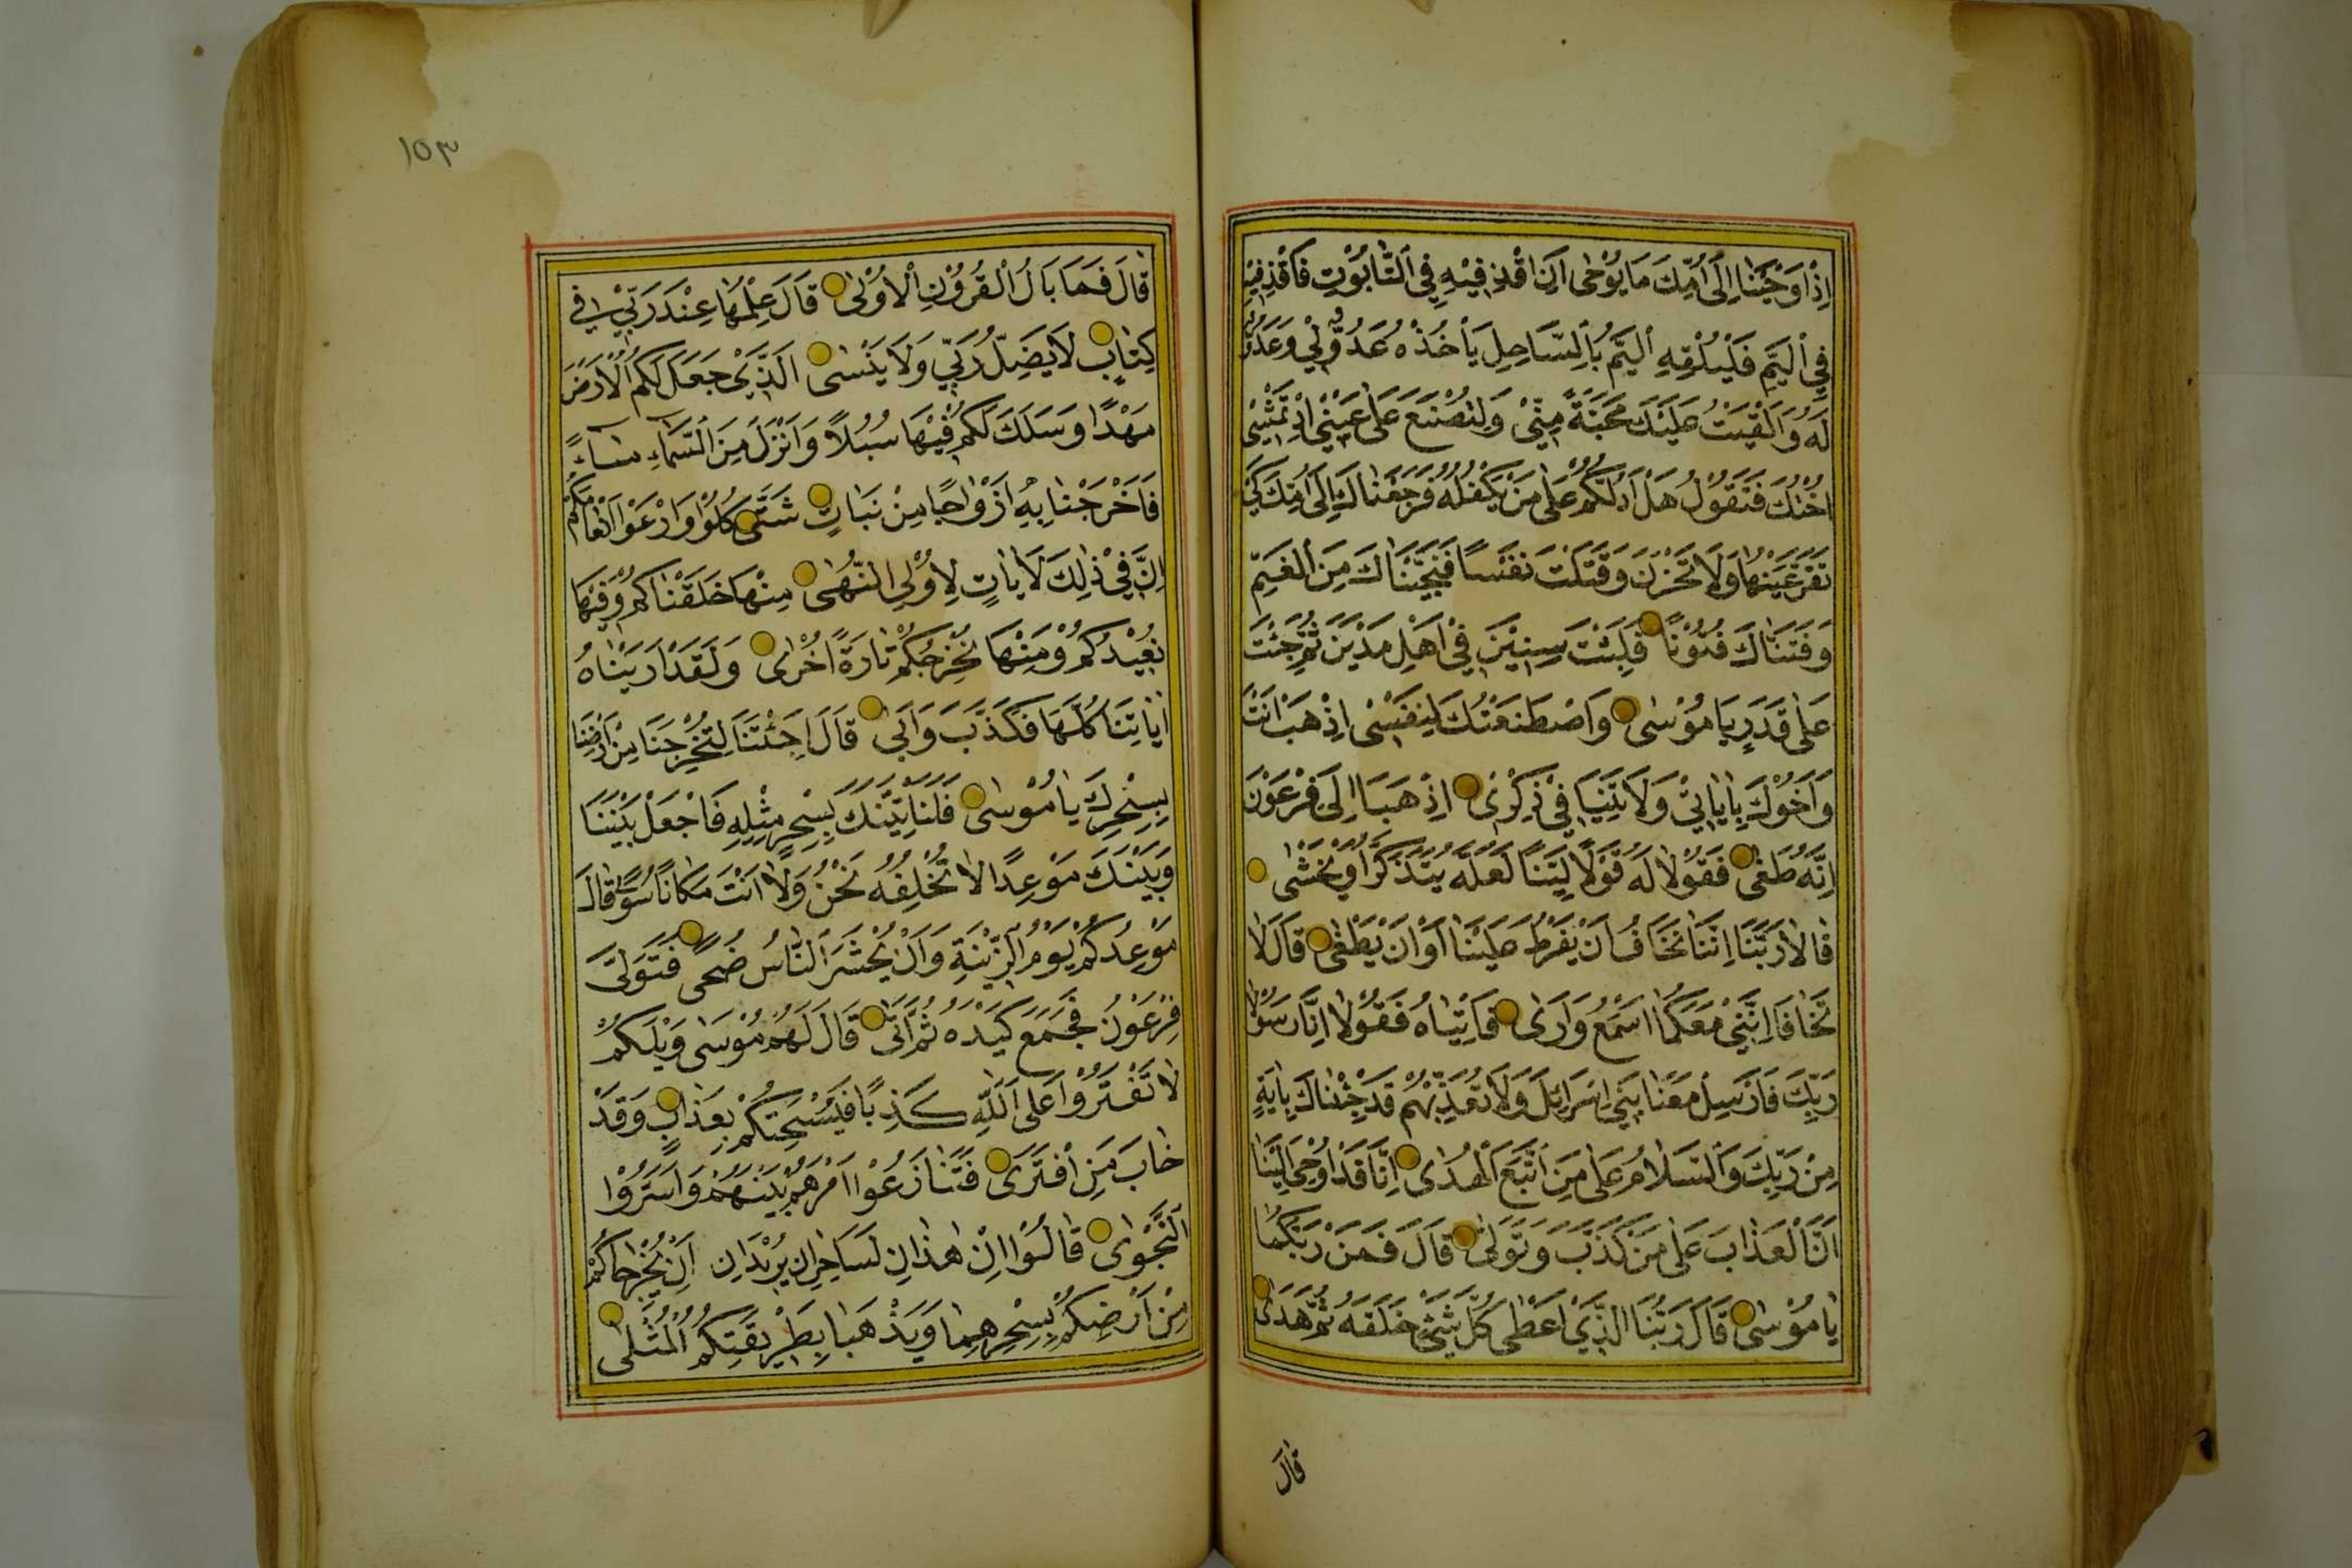 اِذْ اَوْحَيْنَا اِلٰى اُمِّكَ مَا يُوْحٰى اَنِ اقْذِفِيْهِ فِي التَّابُوْتِ فَاقْذِفِيْهِ
فِي الْيَمِّ فَلْيُلْقِهِ الْيَمُّ بِالسَّاحِلِ يَأْخُذْهُ عَدُوٌّ لِيْ وَعَدُوٌّ
لَهُ وَاَلْقَيْتُ عَلَيْكَ مَحَبَّةً مِنِّيْ وَلِتُصْنَعَ عَلٰى عَيْنِيْ اِذْ تَمْشِيْ
اُخْتُكَ فَتَقُوْلُ هَلْ اَدُلُّكُمْ عَلٰى مَنْ يَكْفُلُهُ فَرَجَعْنَاكَ اِلٰى اُمِّكَ كَيْ
تَقَرَّ عَيْنُهَا وَلَا تَحْزَنَ وَقَتَلْتَ نَفْسًا فَنَجَّيْنَاكَ مِنَ الْغَمِّ
وَفَتَنَّاكَ فُتُوْنًا فَلَبِثْتَ سِنِيْنَ فِيْ اَهْلِ مَدْيَنَ ثُمَّ جِئْتَ
عَلٰى قَدَرٍ يَا مُوْسٰى وَاصْطَنَعْتُكَ لِنَفْسِيْ اِذْهَبْ اَنْتَ
وَاَخُوْكَ بِاٰيَاتِيْ وَلَا تَنِيَا فِيْ ذِكْرِيْ اِذْهَبَا اِلٰى فِرْعَوْنَ
اِنَّهُ طَغٰى فَقُوْلَا لَهُ قَوْلًا لَيِّنًا لَعَلَّهُ يَتَذَكَّرُ اَوْ يَخْشٰى
قَالَا رَبَّنَا اِنَّنَا نَخَافُ اَنْ يَفْرُطَ عَلَيْنَا اَوْ اَنْ يَطْغٰى قَالَ لَا
تَخَافَا اِنَّنِيْ مَعَكُمَا اَسْمَعُ وَاَرٰى فَأْتِيَاهُ فَقُوْلَا اِنَّا رَسُوْلَا
رَبِّكَ فَاَرْسِلْ مَعَنَا بَنِيْ اِسْرَائِلَ وَلَا تُعَذِّبْهُمْ قَدْ جِئْنَاكَ بِاٰيَةٍ
مِنْ رَبِّكَ وَالسَّلَامُ عَلٰى مَنِ اتَّبَعَ الْهُدٰى اِنَّا قَدْ اُوْحِيَ اِلَيْنَا
اَنَّ الْعَذَابَ عَلٰى مَنْ كَذَّبَ وَتَوَلّٰى قَالَ فَمَنْ رَبُّكُمَا
يَا مُوْسٰى قَالَ رَبُّنَا الَّذِيْ اَعْطٰى كُلَّ شَيْءٍ خَلْقَهُ ثُمَّ هَدٰى
قَالَ
١٥٣
قَالَ فَمَا بَالُ الْقُرُوْنِ الْاُوْلٰى قَالَ عِلْمُهَا عِنْدَ رَبِّيْ فِي
كِتَابٍ لَا يَضِلُّ رَبِّيْ وَلَا يَنْسٰى الَّذِيْ جَعَلَ لَكُمُ الْاَرْضَ
مَهْدًا وَسَلَكَ لَكُمْ فِيْهَا سُبُلًا وَاَنْزَلَ مِنَ السَّمَاءِ مَاءً
فَاَخْرَجْنَا بِهِ اَزْوَاجًا مِنْ نَبَاتٍ شَتّٰى كُلُوْا وَارْعَوْا اَنْعَامَكُمْ
اِنَّ فِيْ ذٰلِكَ لَاٰيَاتٍ لِاُوْلِي النُّهٰى مِنْهَا خَلَقْنَاكُمْ وَفِيْهَا
نُعِيْدُكُمْ وَمِنْهَا نُخْرِجُكُمْ تَارَةً اُخْرٰى وَلَقَدْ اَرَيْنَاهُ
اٰيَاتِنَا كُلَّهَا فَكَذَّبَ وَاَبٰى قَالَ اَجِئْتَنَا لِتُخْرِجَنَا مِنْ اَرْضِنَا
بِسِحْرِكَ يَا مُوْسٰى فَلَنَأْتِيَنَّكَ بِسِحْرٍ مِثْلِهِ فَاجْعَلْ بَيْنَنَا
وَبَيْنَكَ مَوْعِدًا لَا نُخْلِفُهُ نَحْنُ وَلَا اَنْتَ مَكَانًا سُوًى قَالَ
مَوْعِدُكُمْ يَوْمُ الزِّيْنَةِ وَاَنْ يُحْشَرَ النَّاسُ ضُحًى فَتَوَلّٰى
فِرْعَوْنُ فَجَمَعَ كَيْدَهُ ثُمَّ اَتٰى قَالَ لَهُمْ مُوْسٰى وَيْلَكُمْ
لَا تَفْتَرُوْا عَلَى اللّٰهِ كَذِبًا فَيُسْحِتَكُمْ بِعَذَابٍ وَقَدْ
خَابَ مَنِ افْتَرٰى فَتَنَازَعُوْا اَمْرَهُمْ بَيْنَهُمْ وَاَسَرُّوْا
النَّجْوٰى قَالُوْا اِنْ هٰذَانِ لَسَاحِرَانِ يُرِيْدَانِ اَنْ يُخْرِجَاكُمْ
مِنْ اَرْضِكُمْ بِسِحْرِهِمَا وَيَذْهَبَا بِطَرِيْقَتِكُمُ الْمُثْلٰى